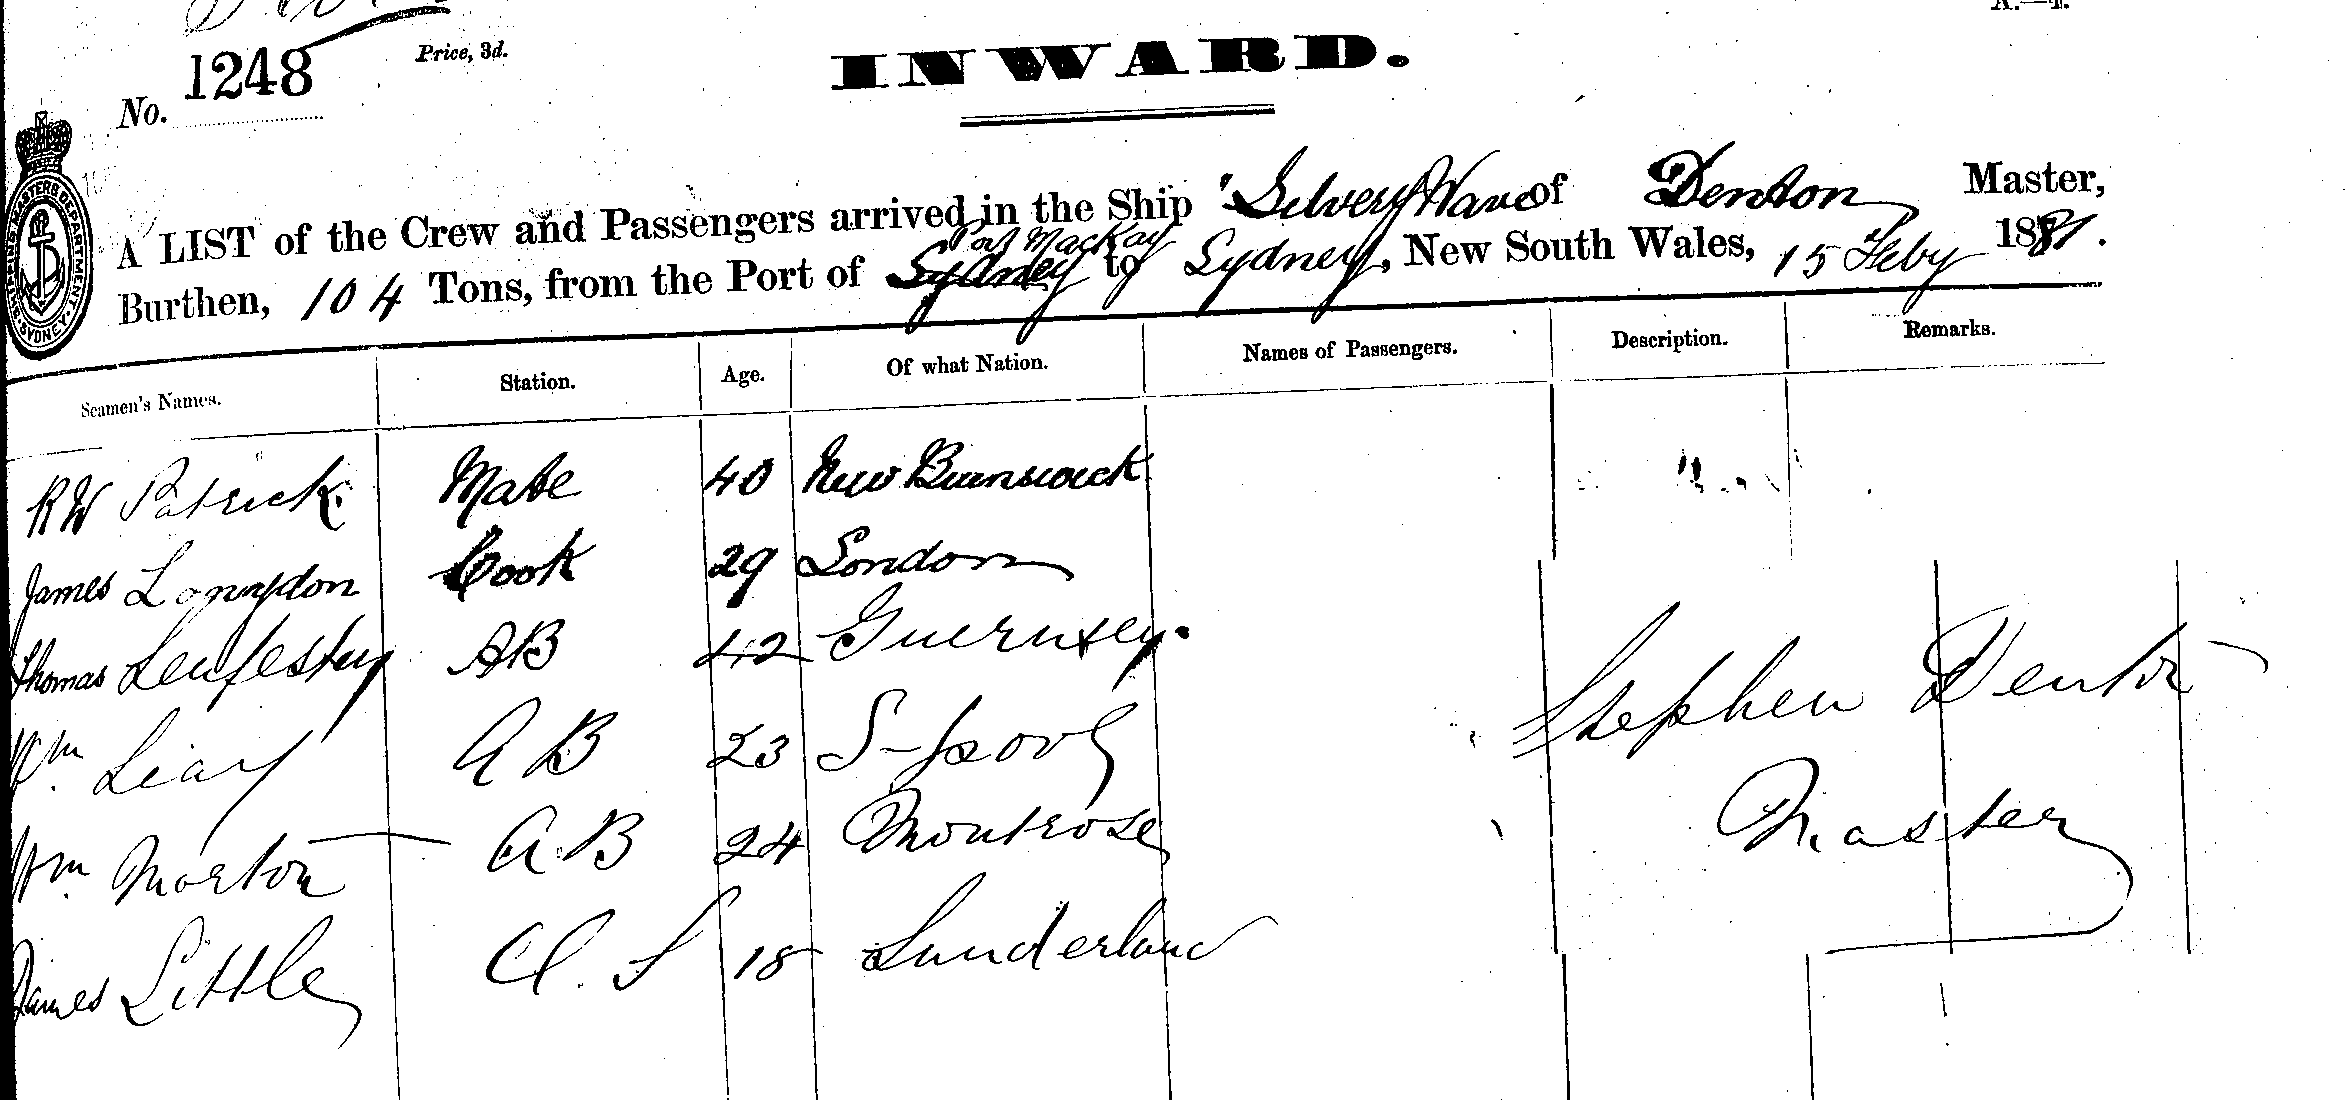 No. 1248
Price, 3d.
INWARD.
A LIST of the Crew and Passengers arrived in the Ship "Silvery Wave of Denton Master,
Port Mackay
Burthen, 104 Tons, from the Port of Sydney to Sydney, New South Wales, 15 Feby 1881.
Seamen's Names. Station. Age. Of what Nation. Names of Passengers. Description. Remarks.
RW Patrick Mate 40 New Brunswick
James Longdon Cook 29 London
Thomas AB 42 Guernsey.
Wm Liary A B 23 L-pool
Wm Morton A B 24 Montrose
James Little O.S 18 Sunderland
Stephen Denton
Master
SHIPPING MASTERS DEPARTMENT
SYDNEY